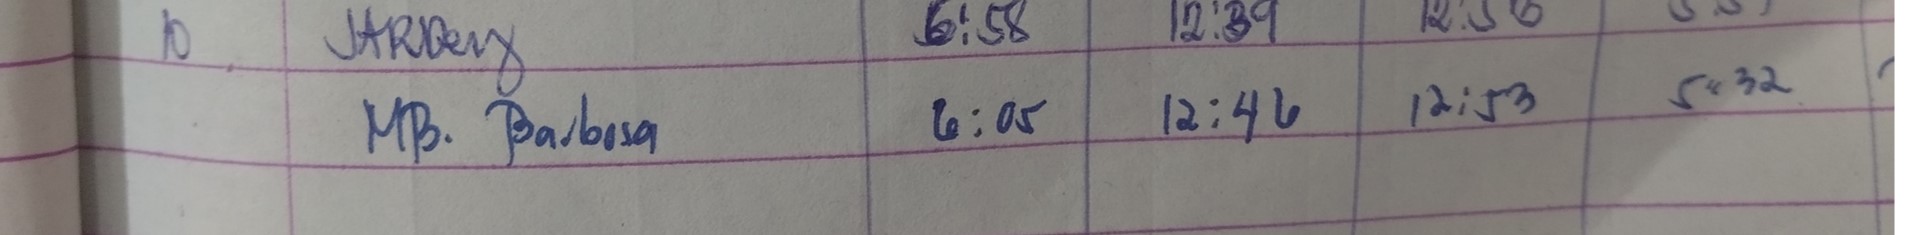 10 JARDeny 6:58 12:39 12:56
MB. Barbosa 6:05 12:46 12:53 5:32